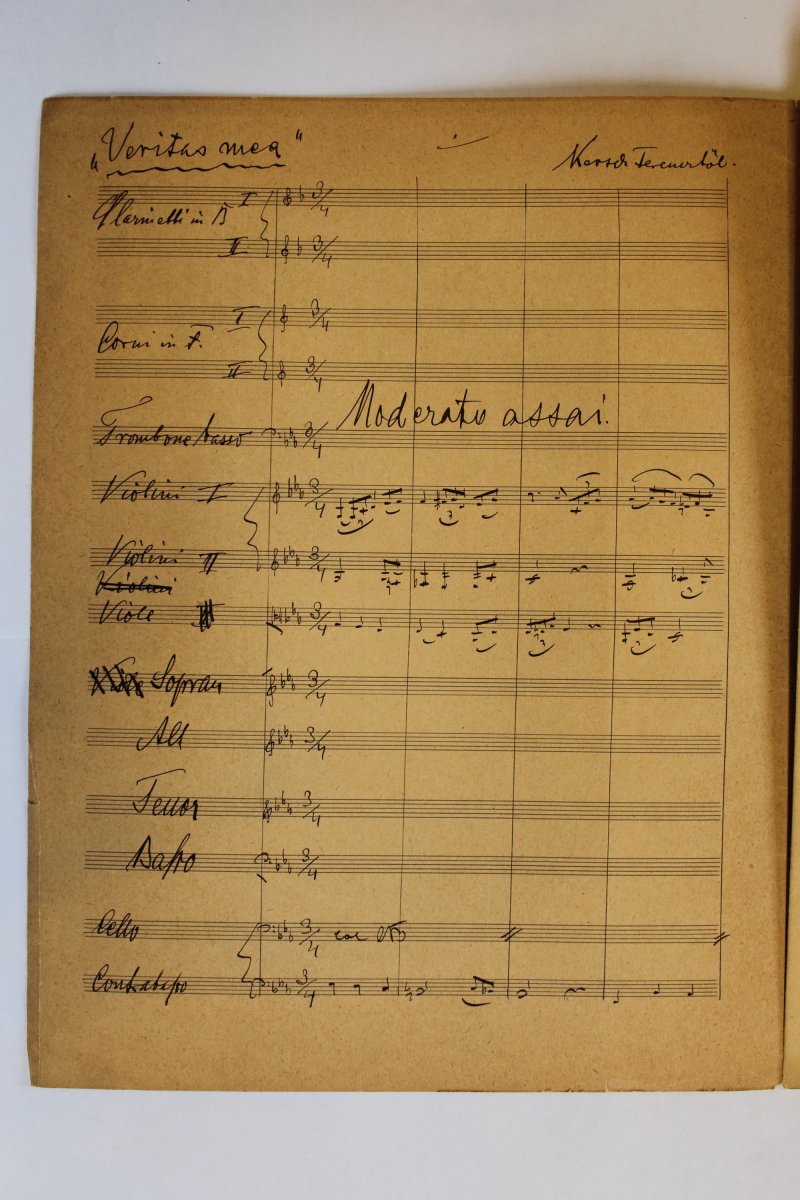 „Veritas mea“
Karsch Ferencztől.
Clarinetti in B I
II
Corni in F. I
II
Moderato assai.
Trombone basso
Violini I
Violini II
Violini
Viole
Sopran
Alt
Tenor
Baſso
Cello col CB
Contrabaſso